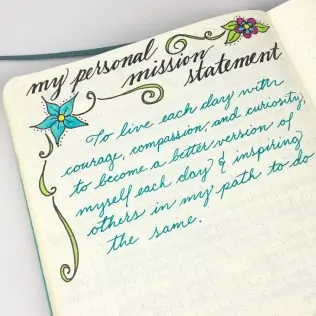 my personal
mission
statement
To live each day with
courage, compassion, and curiosity;
to become a better version of
myself each day & inspiring
others in my path to do
the same.